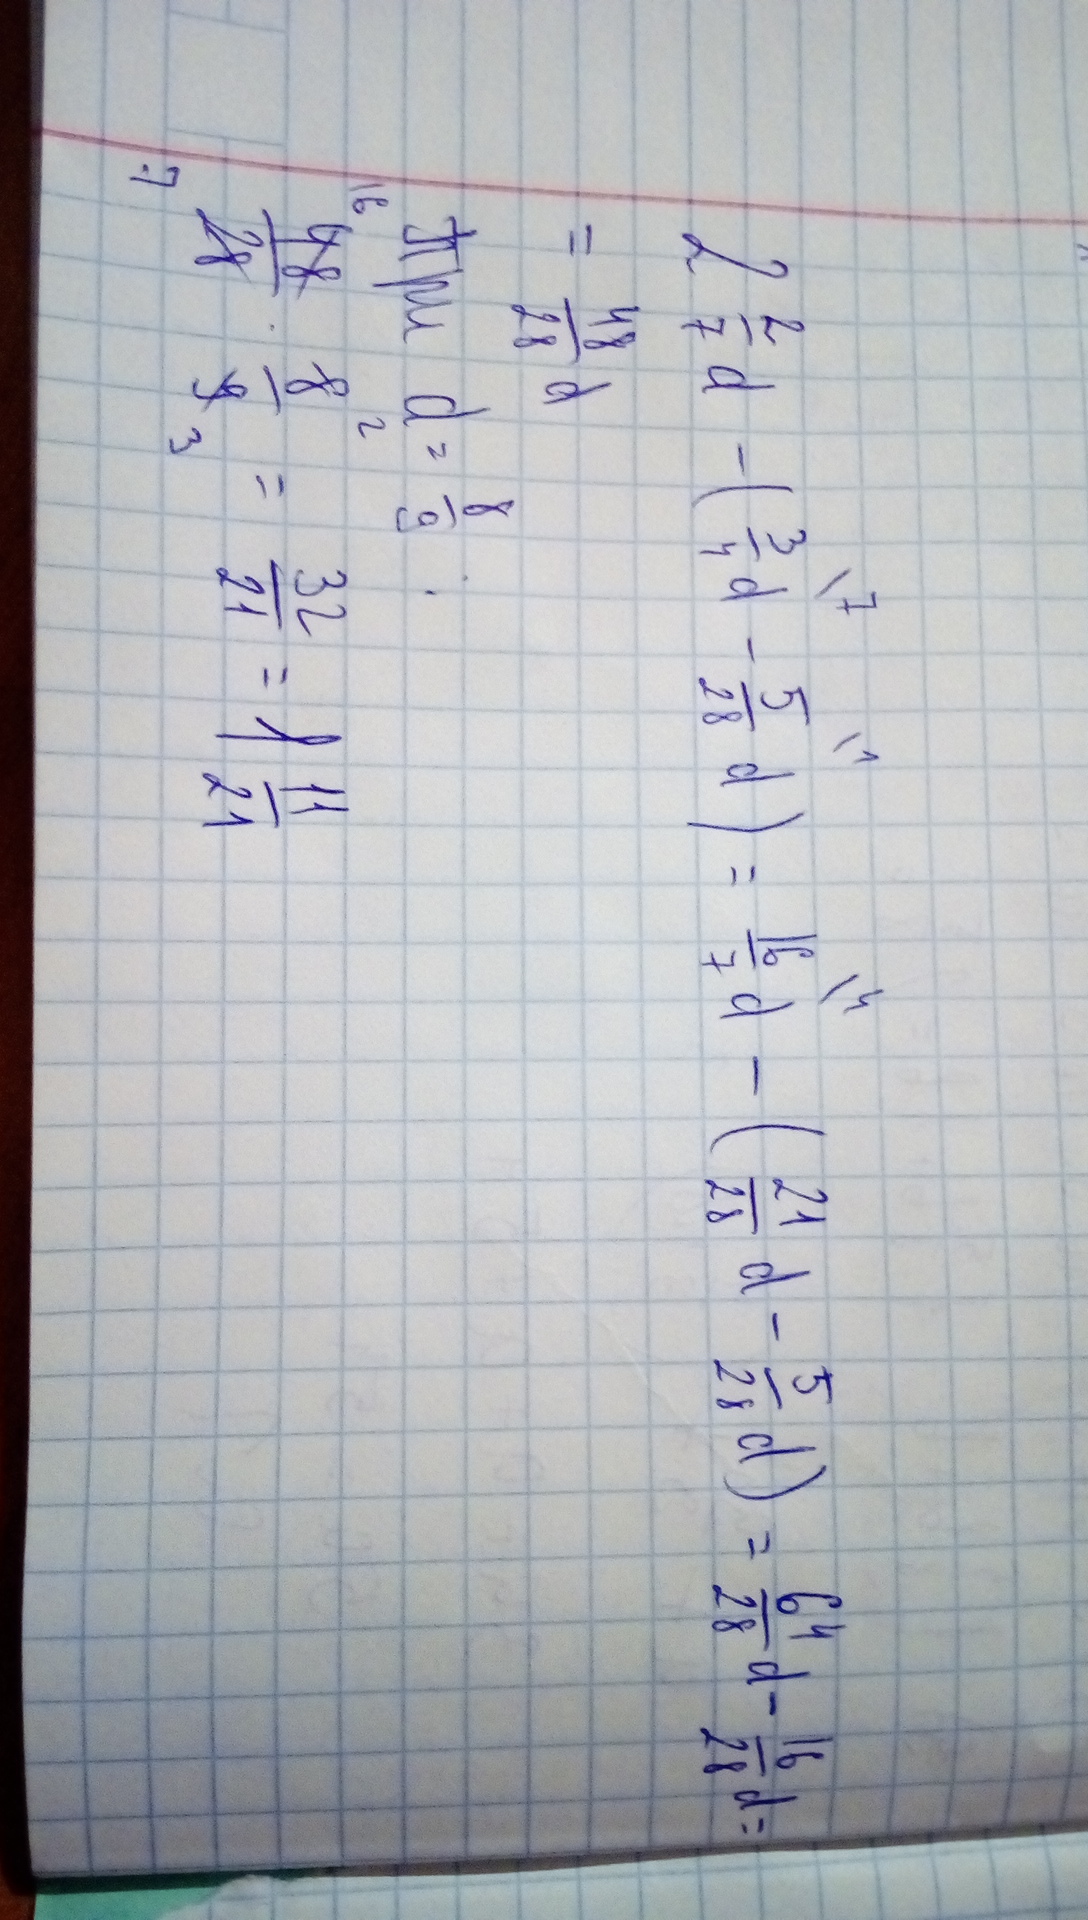 2 2/7 d - (3/4 \7 d - 5/28 \1 d) = 16/7 \4 d - (21/28 d - 5/28 d) = 64/28 d - 16/28 d =
= 48/28 d
при d = 8/9 :
16 48/28 7 · 8 2/9 3 = 32/21 = 1 11/21